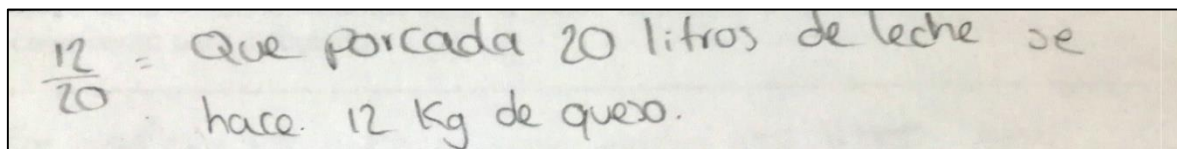 12/20 = Que porcada 20 litros de leche se
hace. 12 Kg de queso.